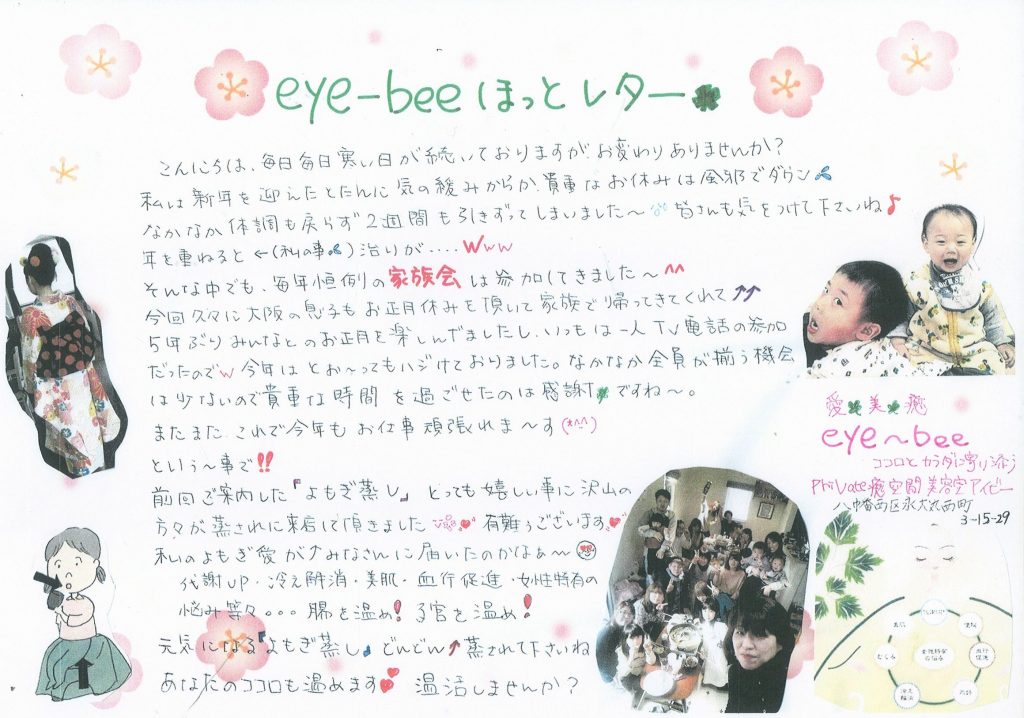 eye-bee ほっとレター
こんにちは、毎日毎日寒い日が続いておりますが、お変わりありませんか?
私は新年を迎えたとたんに気の緩みからか、貴重なお休みは風邪でダウン
なかなか体調も戻らず2週間も引きずってしまいました〜皆さんも気をつけて下さいね♪
年を重ねると←(私の事)治りが....www
そんな中でも、毎年恒例の家族会は参加してきました〜^^
今回久々に大阪の息子もお正月休みを頂いて家族で帰ってきてくれて↑↑
5年ぶりみんなとのお正月を楽しんでましたし、いつもは一人TV電話の参加
だったのでw今年はとお〜ってもハジけておりました。なかなか全員が揃う機会
は少ないので貴重な時間を過ごせたのは感謝ですね〜。
またまた、これで今年もお仕事頑張れま〜す(*^^)
という〜事で!!
前回ご案内した『よもぎ蒸し』とっても嬉しい事に沢山の
方々が蒸されに来店して頂きました 有難うございます
私のよもぎ愛が↗みなさんに届いたのかなぁ〜
代謝UP・冷え解消・美肌・血行促進・女性特有の
悩み等々・・・腸を温め!子宮を温め!
元気になる『よもぎ蒸し』どんどん↑蒸されて下さいね
あなたのココロも温めます 温活しませんか?
愛 美 癒
eye〜bee
ココロとカラダに寄り添う
Private癒空間美容室アイビー
八幡西区永犬丸西町
3-15-29
むくみ
血行
促進
冷え